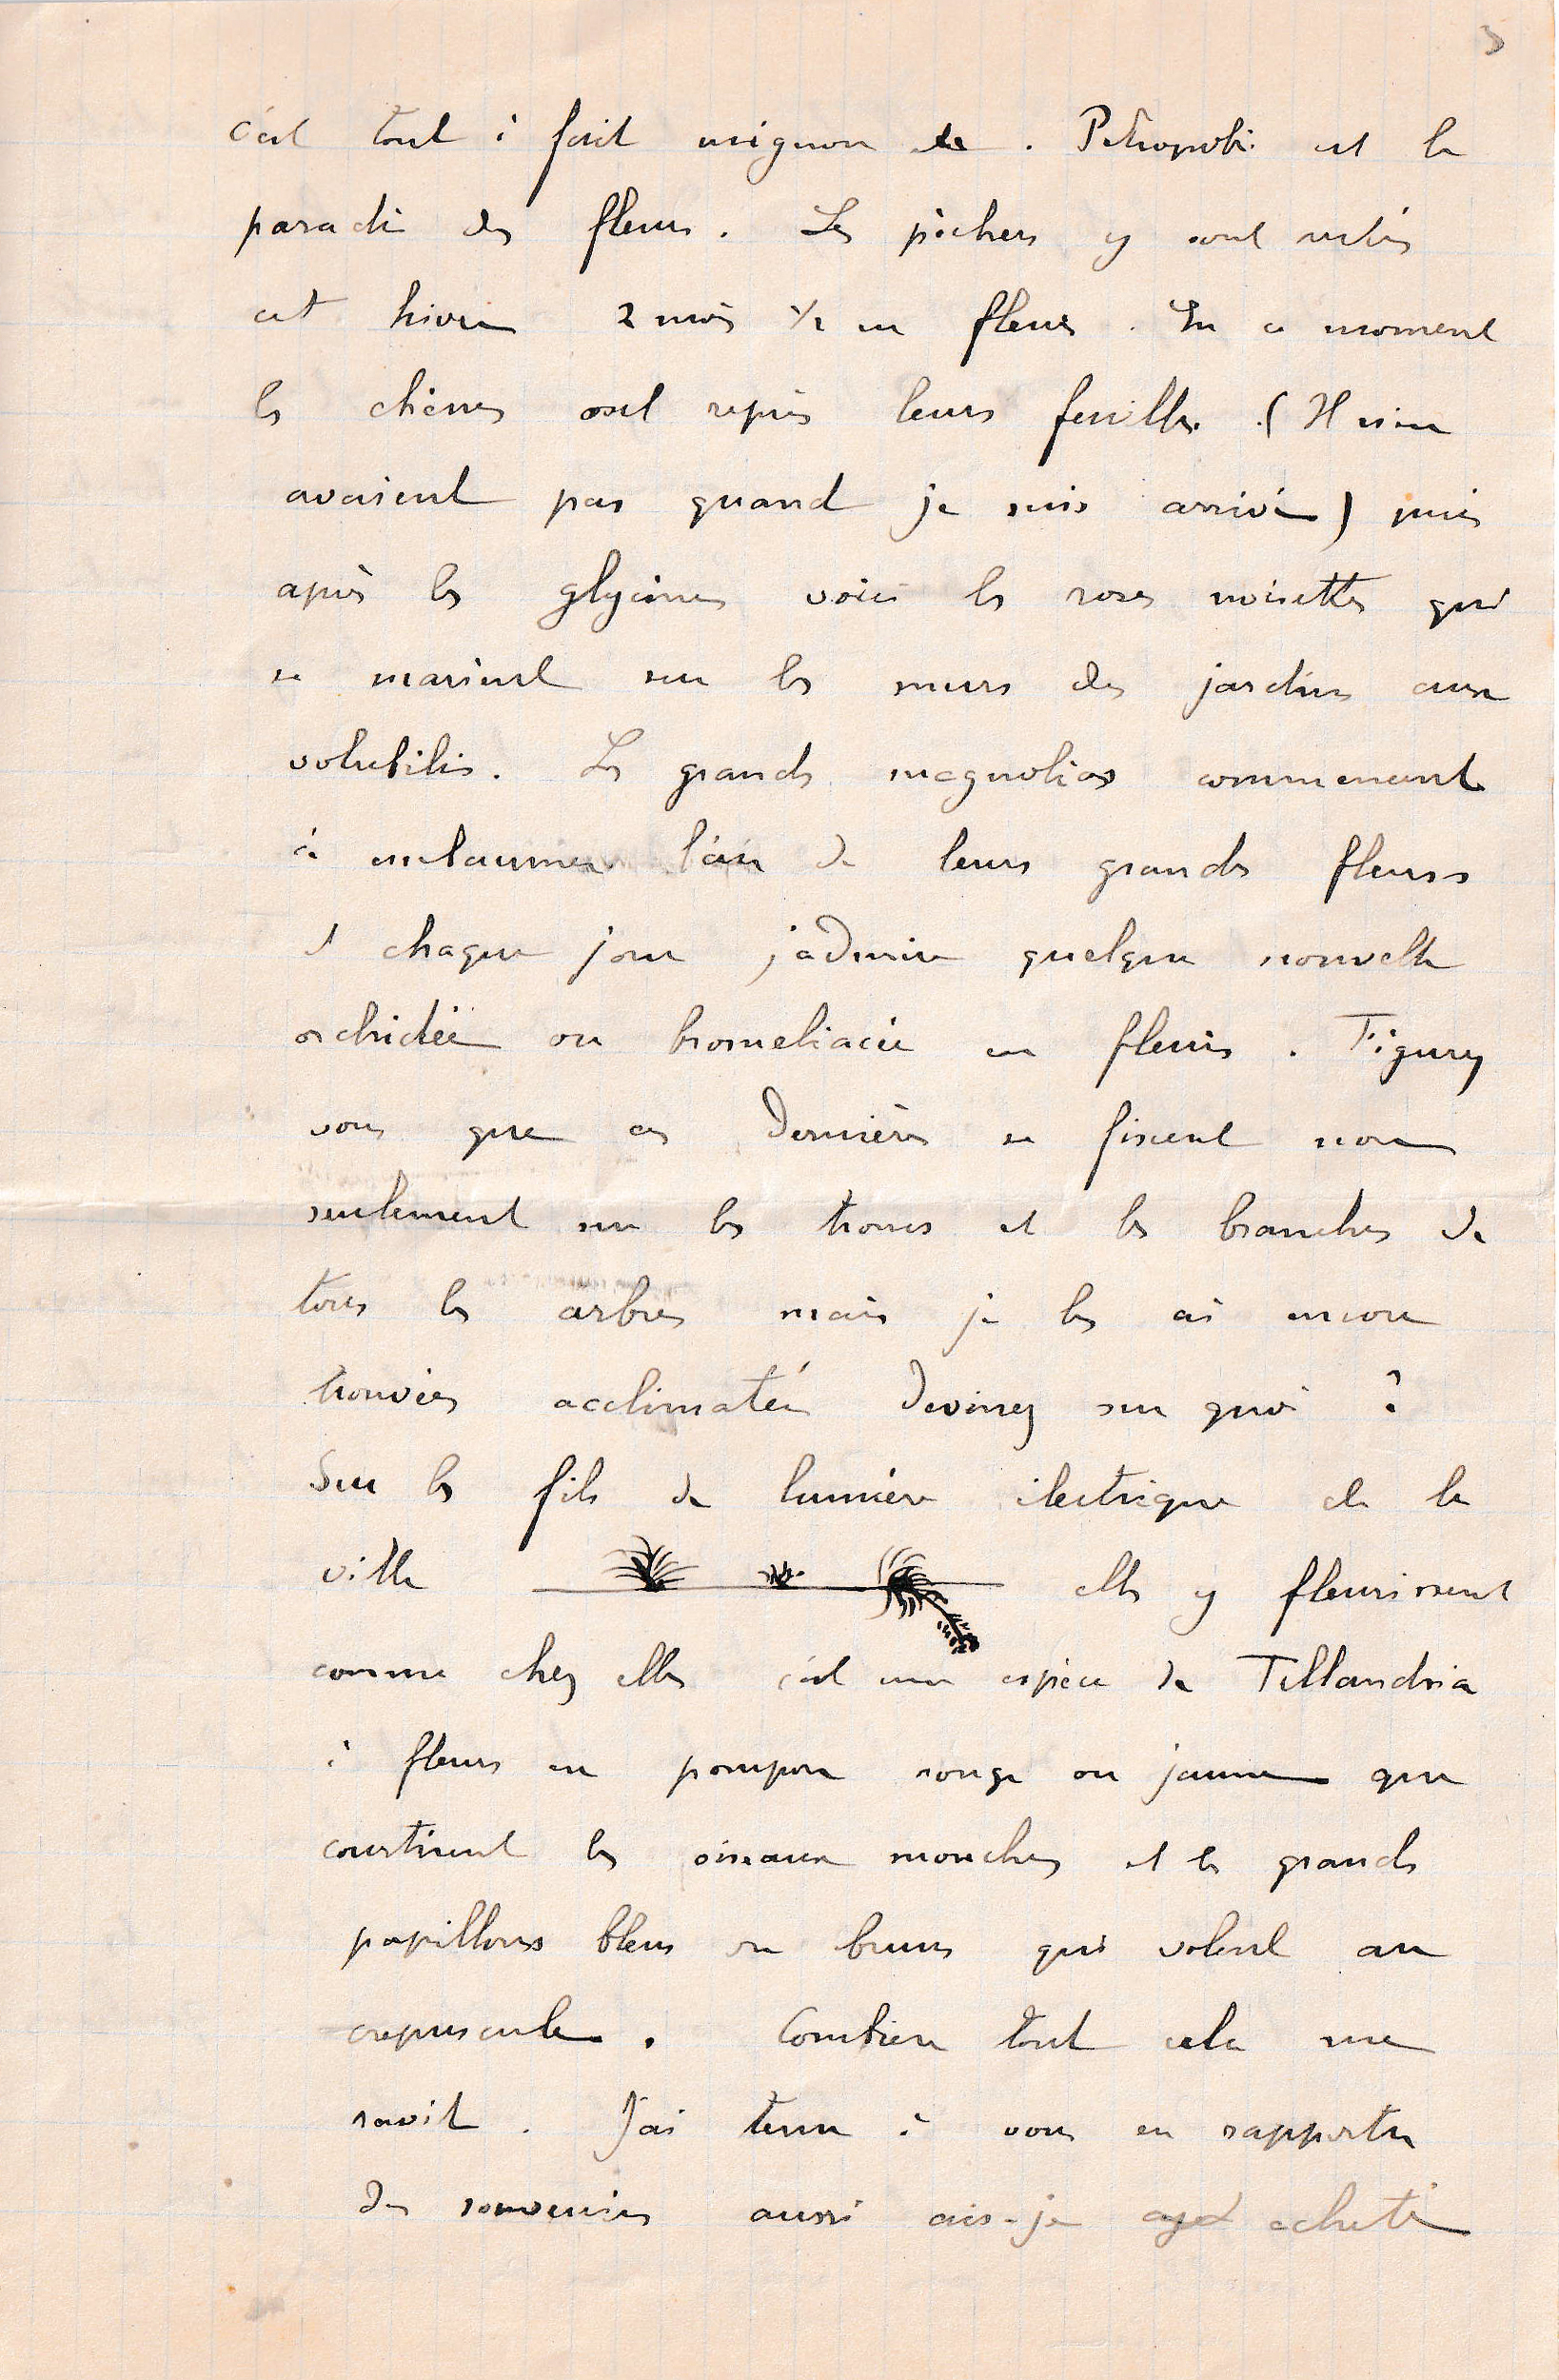 3
c'est tout à fait mignon. Petropolis est le
paradis des fleurs. Les pêchers y sont restés
cet hiver 2 mois 1/2 en fleurs. En ce moment
les chênes ont repris leurs feuilles. (Ils n'en
avaient pas quand je suis arrivé) puis
après les glycines voici les roses noisettes qui
se marient sur les murs des jardins aux
volubilis. Les grands magnolias commencent
à embaumer l'air de leurs grandes fleurs
et chaque jour j'admire quelque nouvelle
orchidée ou bromeliacée en fleurs. Figurez
vous que ces dernières se fixent non
seulement sur les troncs et les branches de
tous les arbres mais je les ai encore
trouvées acclimatées devinez sur quoi ?
Sur les fils de lumière électrique de la
ville elles y fleurissent
comme chez elles c'est une espèce de Tillandsia
à fleurs en pompon rouge ou jaune que
courtisent les oiseaux mouches et les grands
papillons bleus ou bruns qui volent au
crepuscule. Combien tout cela me
ravit. J'ai tenu à vous en rapporter
des souvenirs aussi ais-je acheté